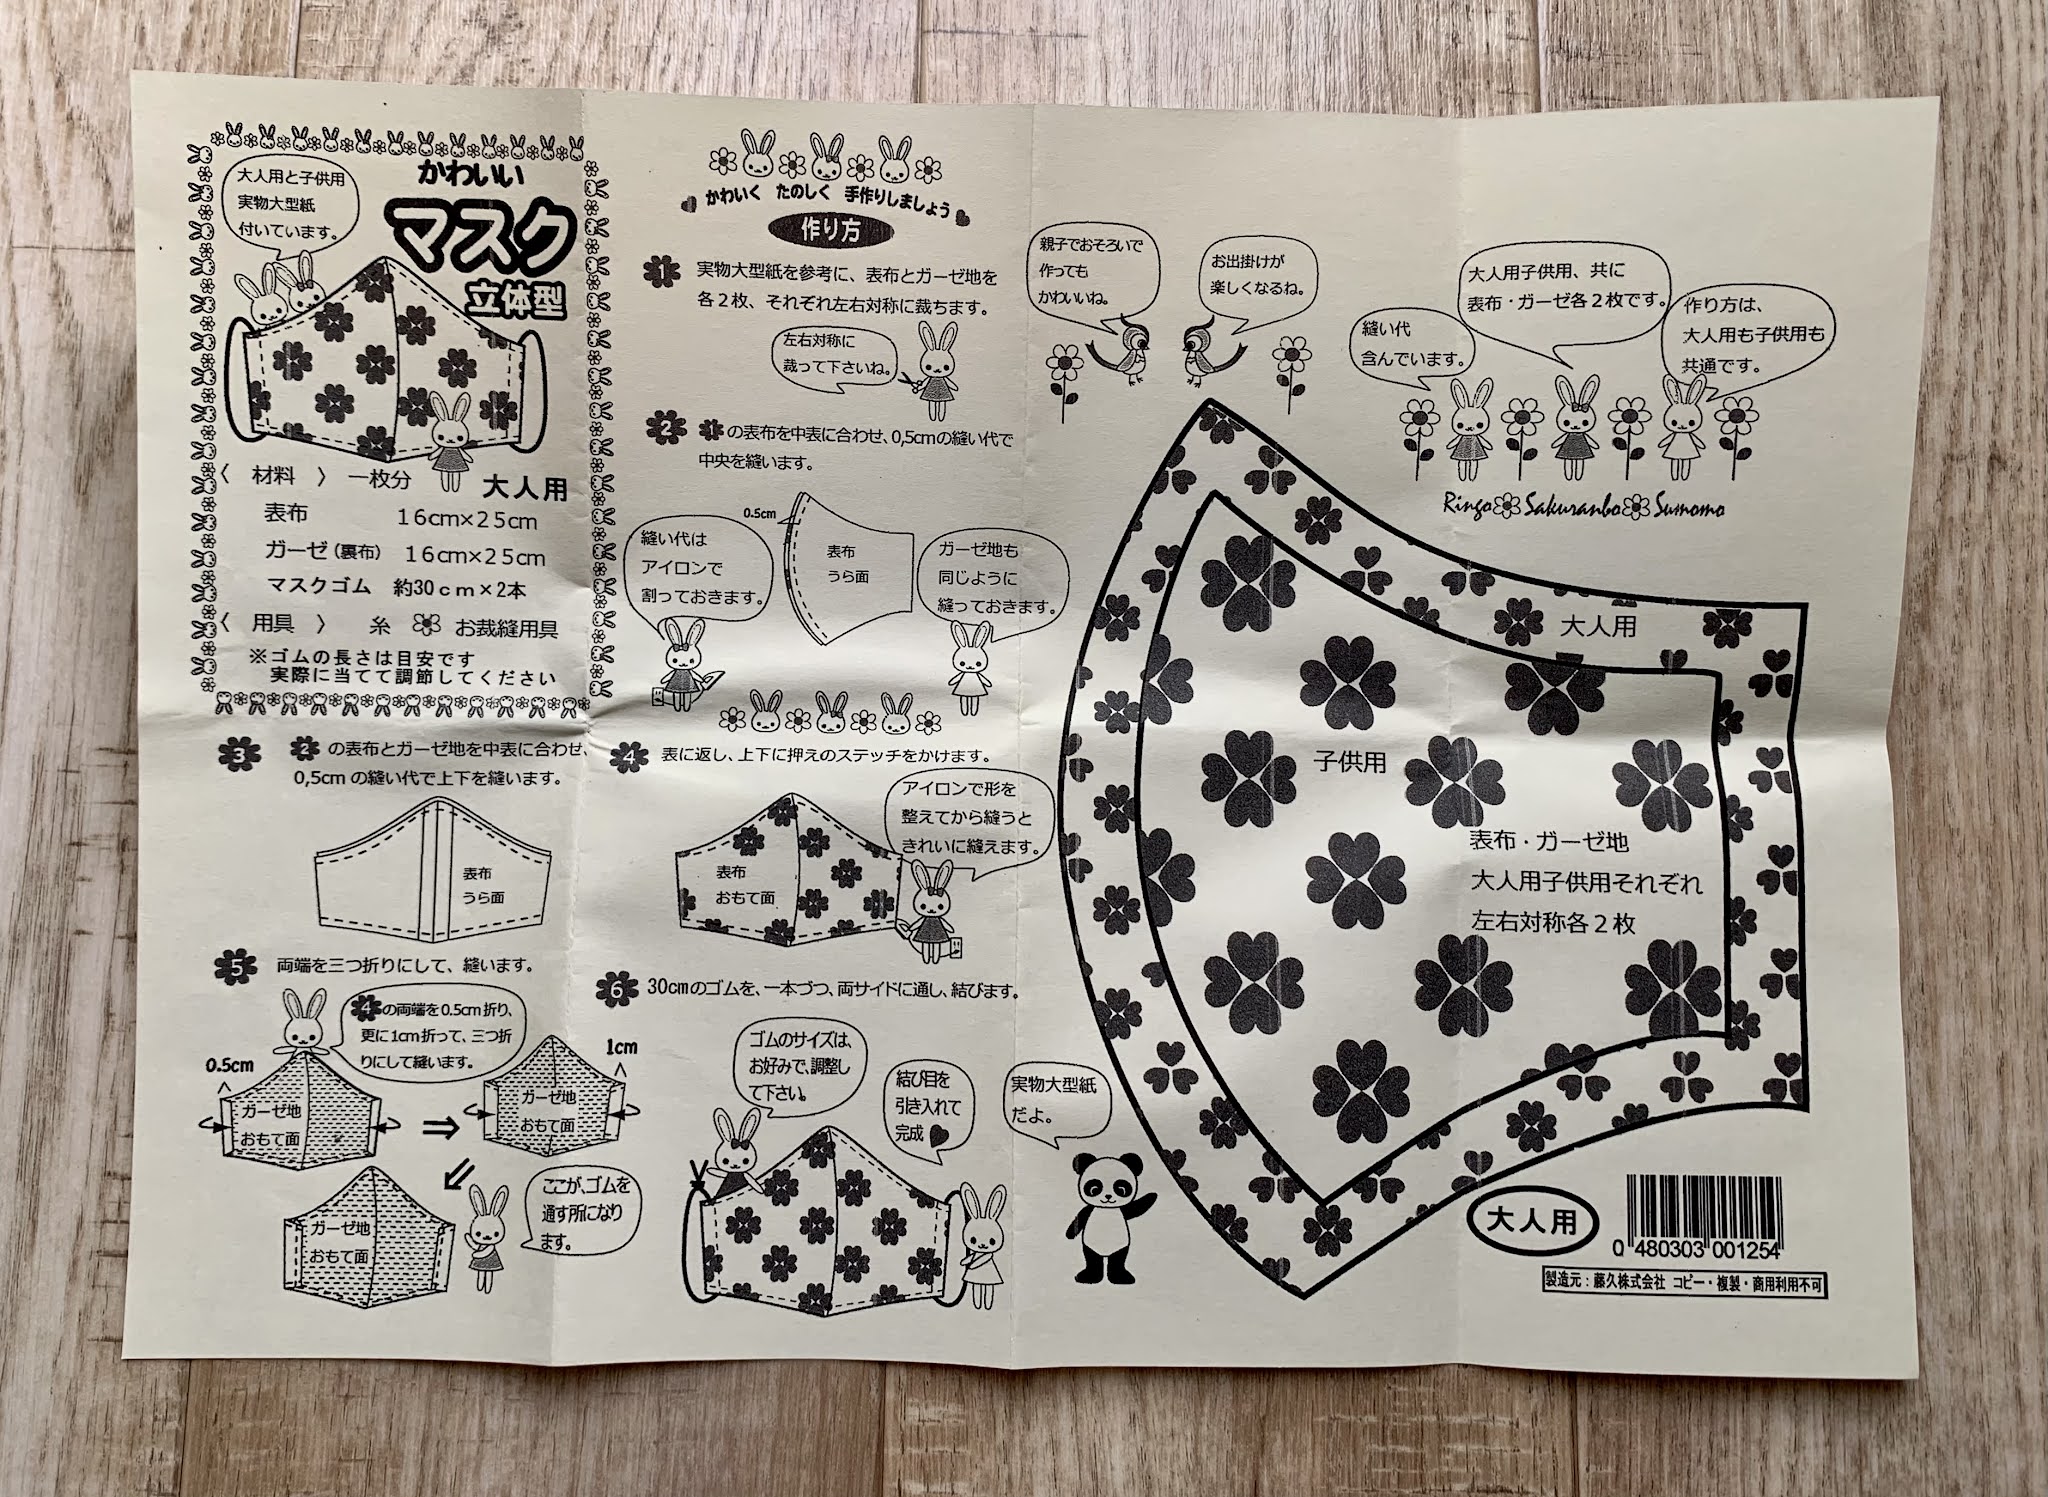 大人用と子供用
実物大型紙
付いています。
かわいい
マスク
立体型
〈 材料 〉 一枚分
大人用
表布 16cm×25cm
ガーゼ(裏布) 16cm×25cm
マスクゴム 約30cm×2本
〈 用具 〉 糸 お裁縫用具
※ゴムの長さは目安です
実際に当てて調節してください
かわいく たのしく 手作りしましょう
作り方
1 実物大型紙を参考に、表布とガーゼ地を
各2枚、それぞれ左右対称に裁ちます。
左右対称に
裁って下さいね。
2 1の表布を中表に合わせ、0,5cmの縫い代で
中央を縫います。
0.5cm
表布
うら面
縫い代は
アイロンで
割っておきます。
ガーゼ地も
同じように
縫っておきます。
3 2の表布とガーゼ地を中表に合わせ、
0,5cmの縫い代で上下を縫います。
表布
うら面
4 表に返し、上下に押えのステッチをかけます。
アイロンで形を
整えてから縫うと
きれいに縫えます。
表布
おもて面
5 両端を三つ折りにして、縫います。
4の両端を0.5cm折り、
更に1cm折って、三つ折
りにして縫います。
0.5cm
ガーゼ地
おもて面
1cm
ガーゼ地
おもて面
ガーゼ地
おもて面
ここが、ゴムを
通す所になり
ます。
6 30cmのゴムを、一本づつ、両サイドに通し、結びます。
ゴムのサイズは、
お好みで、調整し
て下さい。
結び目を
引き入れて
完成
親子でおそろいで
作っても
かわいいね。
お出掛けが
楽しくなるね。
縫い代
含んでいます。
大人用子供用、共に
表布・ガーゼ各2枚です。
作り方は、
大人用も子供用も
共通です。
Ringo Sakuranbo Sumomo
大人用
子供用
表布・ガーゼ地
大人用子供用それぞれ
左右対称各2枚
実物大型紙
だよ。
大人用
0 480303 001254
製造元：藤久株式会社 コピー・複製・商用利用不可